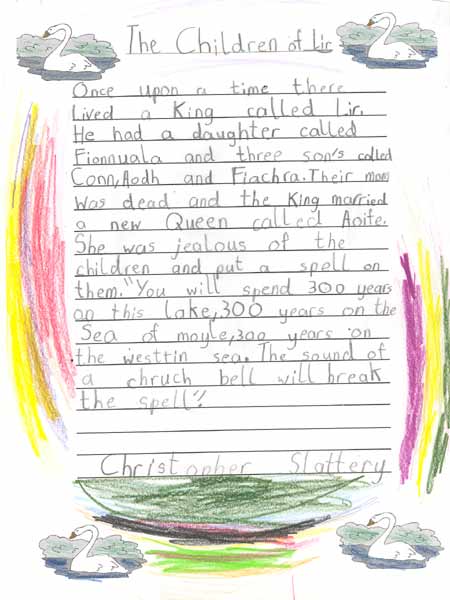 The Children of Lir
Once upon a time there
Lived a King called Lir.
He had a daughter called
Fionnuala and three son's called
Conn, Aodh and Fiachra. Their mam
was dead and the King married
a new Queen called Aoife.
She was jealous of the
children and put a spell on
them. "You will spend 300 years
on this lake, 300 years on the
Sea of moyle, 300 years on
the westtin sea. The sound of
a chruch bell will break
the spell".
Christopher Slattery